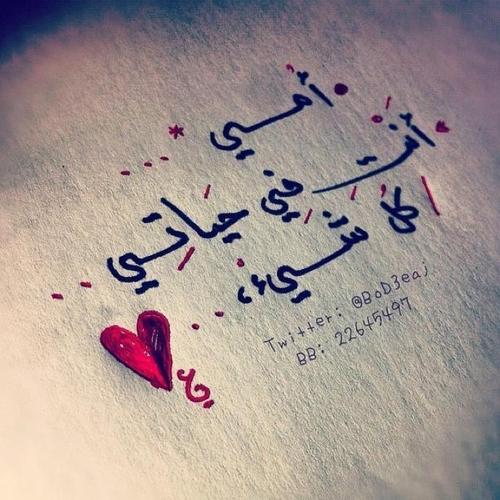 أمي
أنتِ في حياتي
كل شيء،
Twitter: @BoD3eaj
BB: 22645497